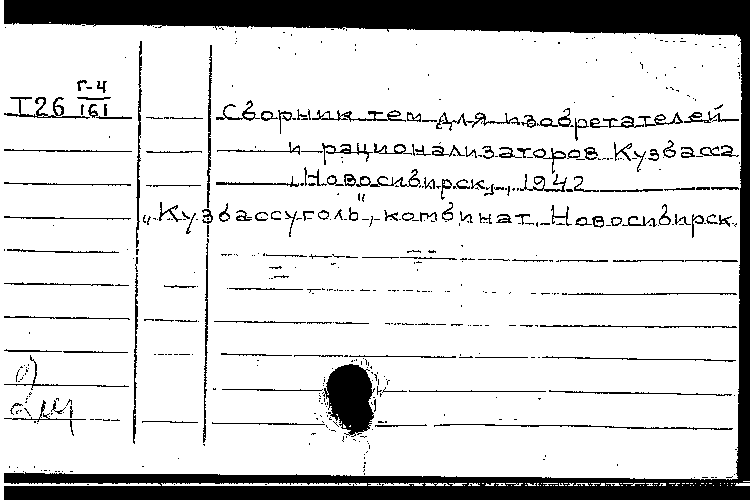 Г-4
I26 161
Сборник тем для изобретателей
и рационализаторов Кузбасса
Новосибирск, 1942
„Кузбассуголь", комбинат, Новосибирск.